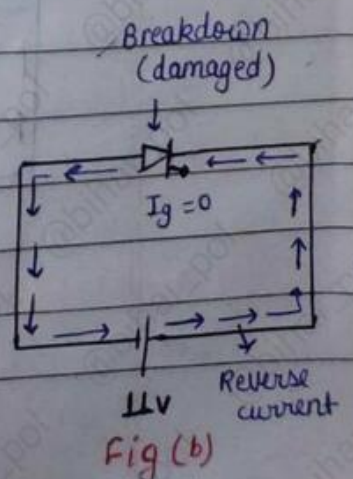 Breakdown
(damaged)
Ig = 0
Reverse
current
11v
Fig (b)